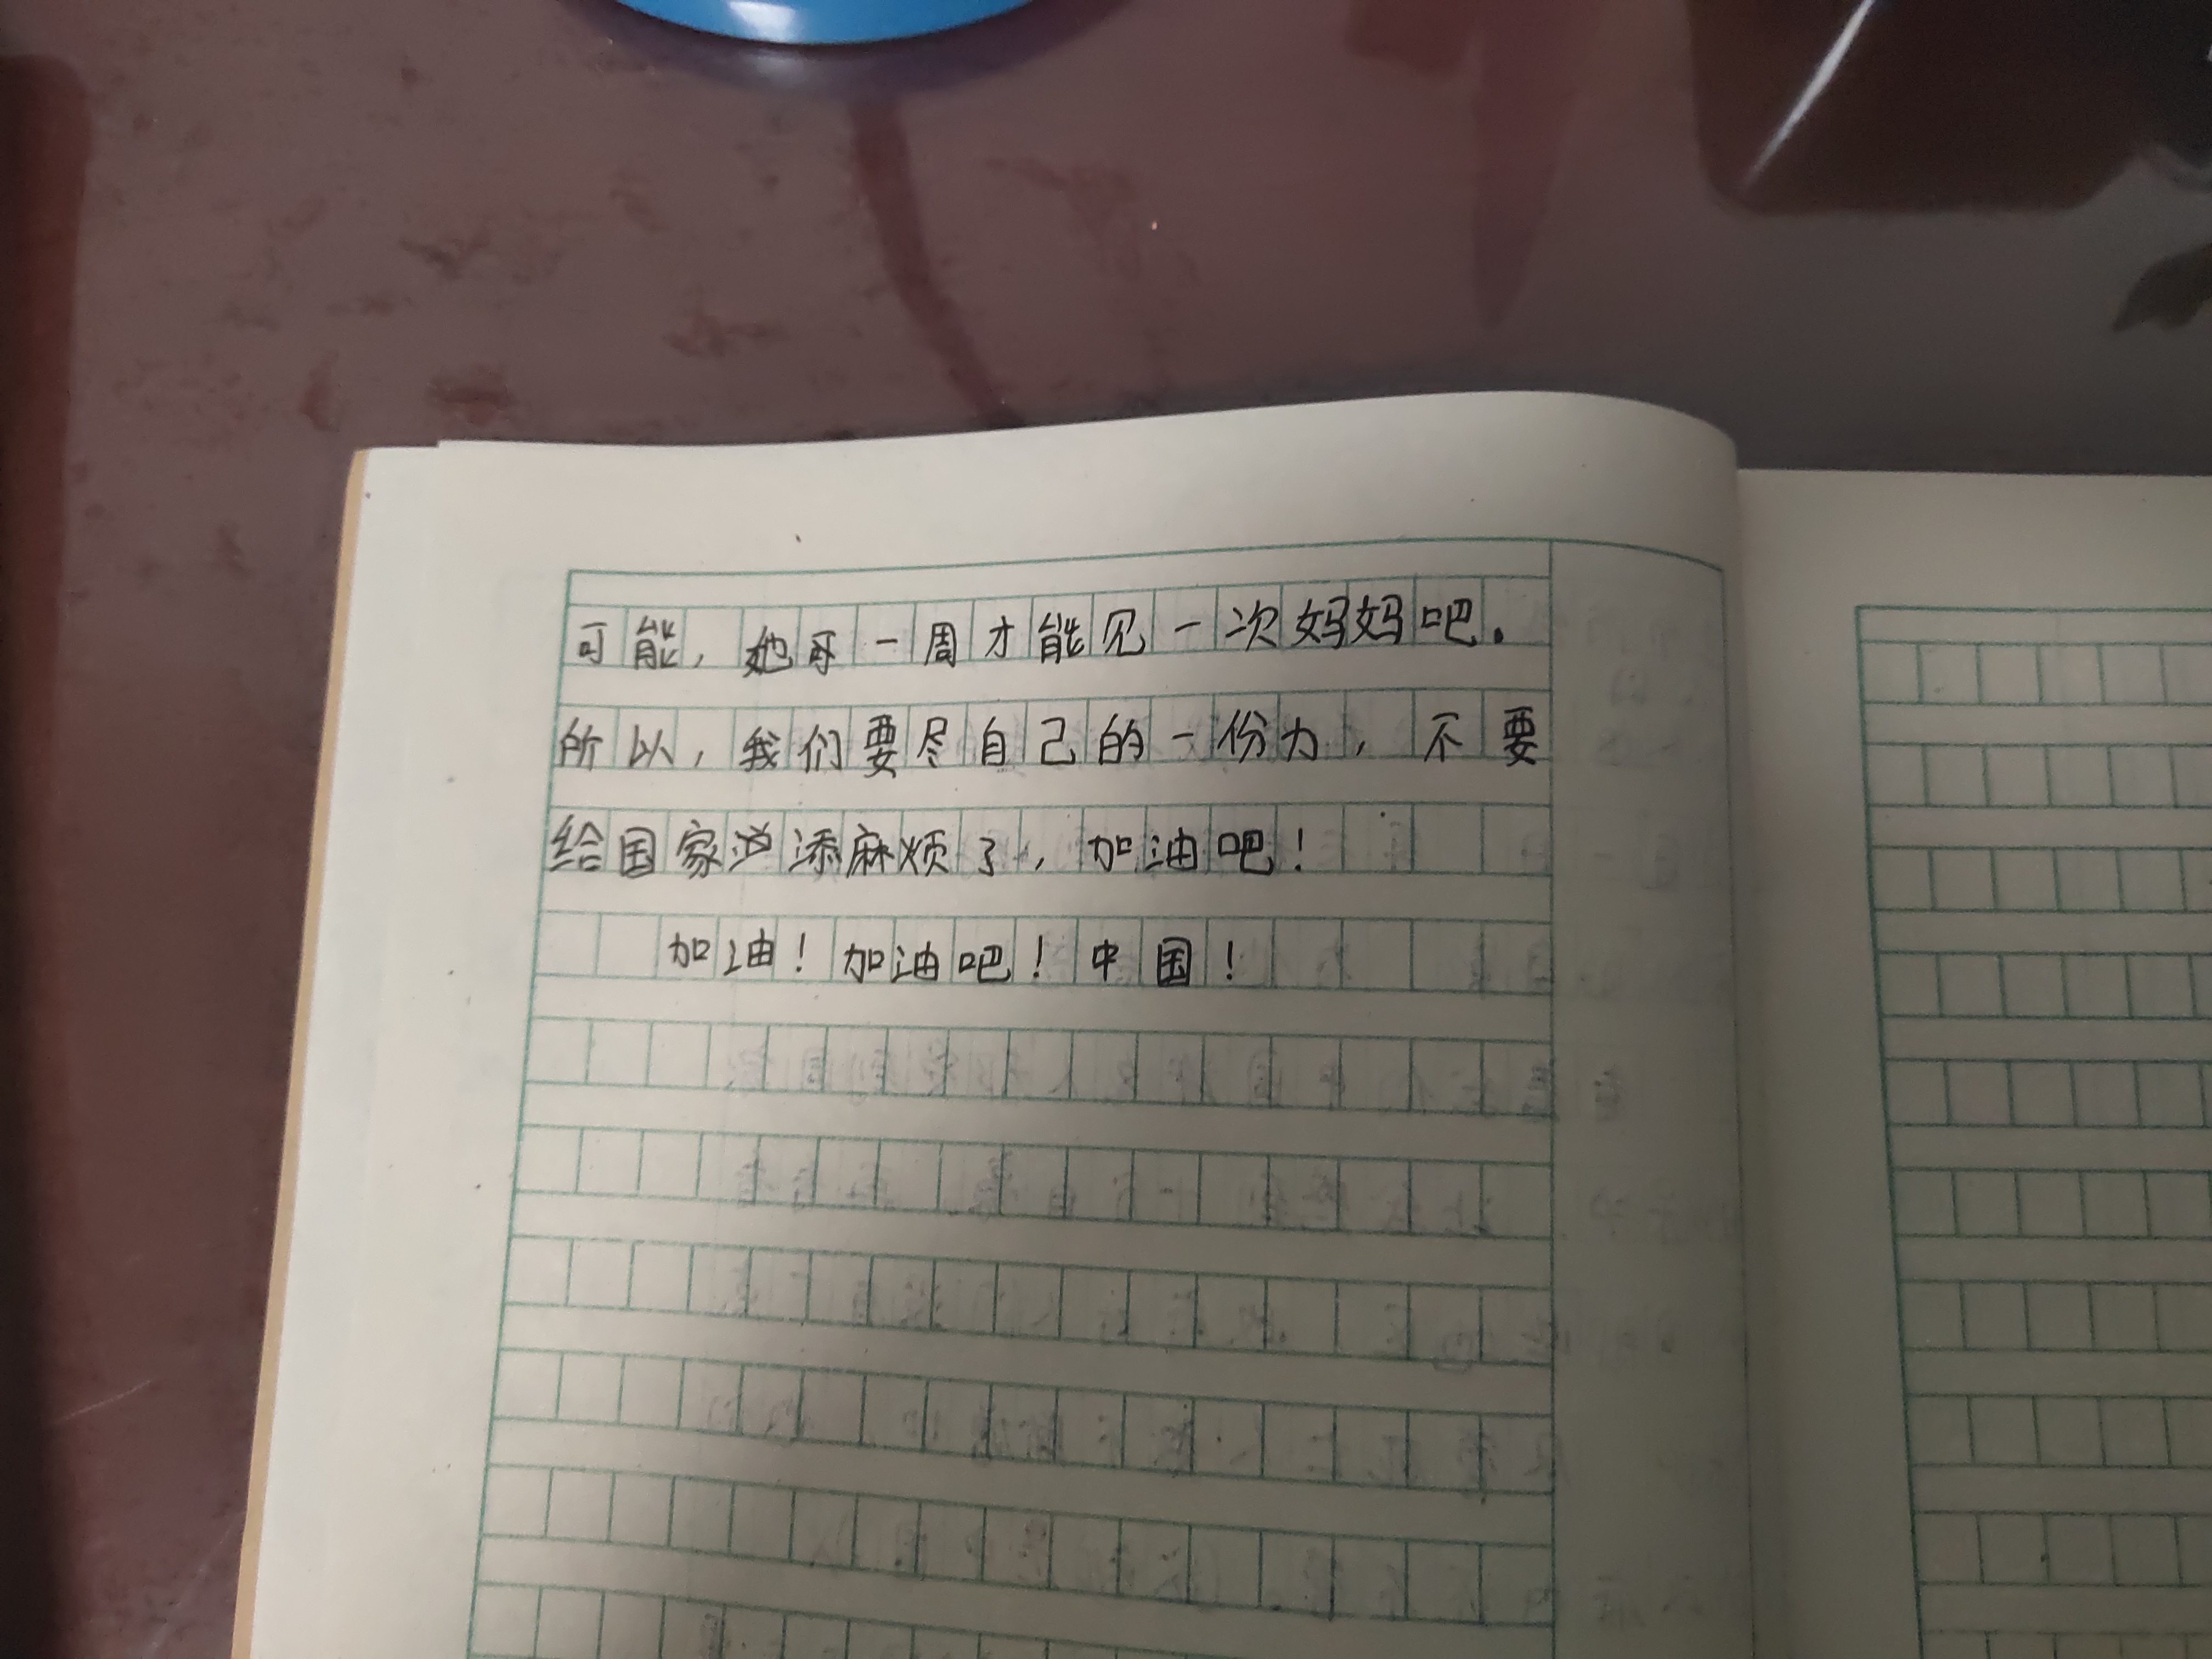 可能，她可一周才能见一次妈妈吧。
所以，我们要尽自己的一份力，不要
给国家添麻烦了，加油吧！
加油！加油吧！中国！